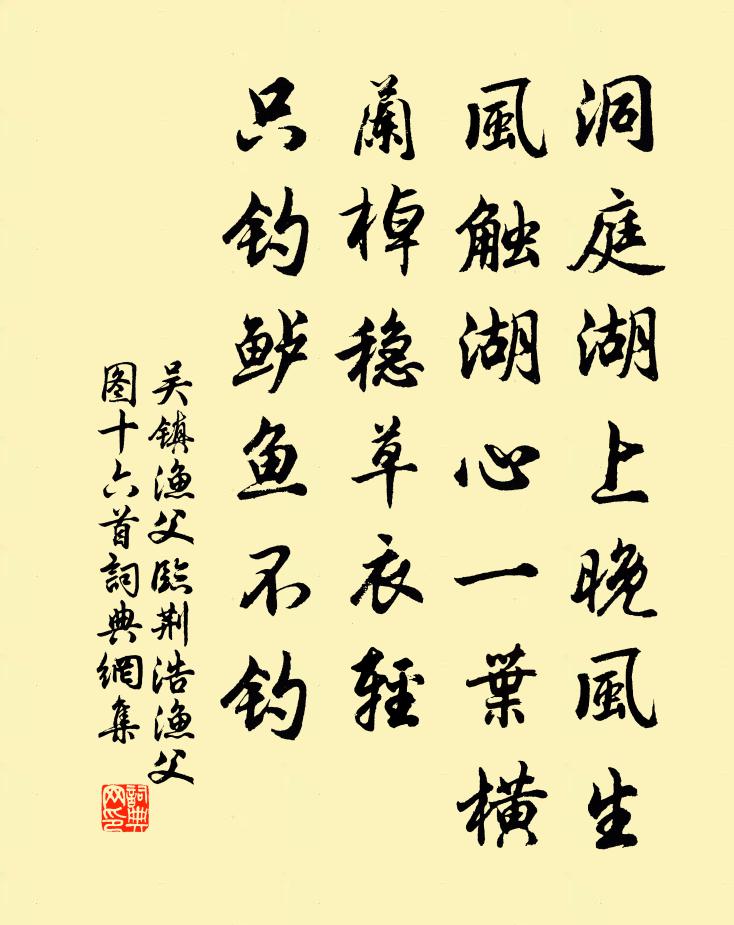 洞庭湖上晚風生
風触湖心一葉橫
蘭棹穏草衣輕
只钓鲈鱼不钓
吴镇渔父臨荆浩渔父
图十六首詞典網集
詞典
网印